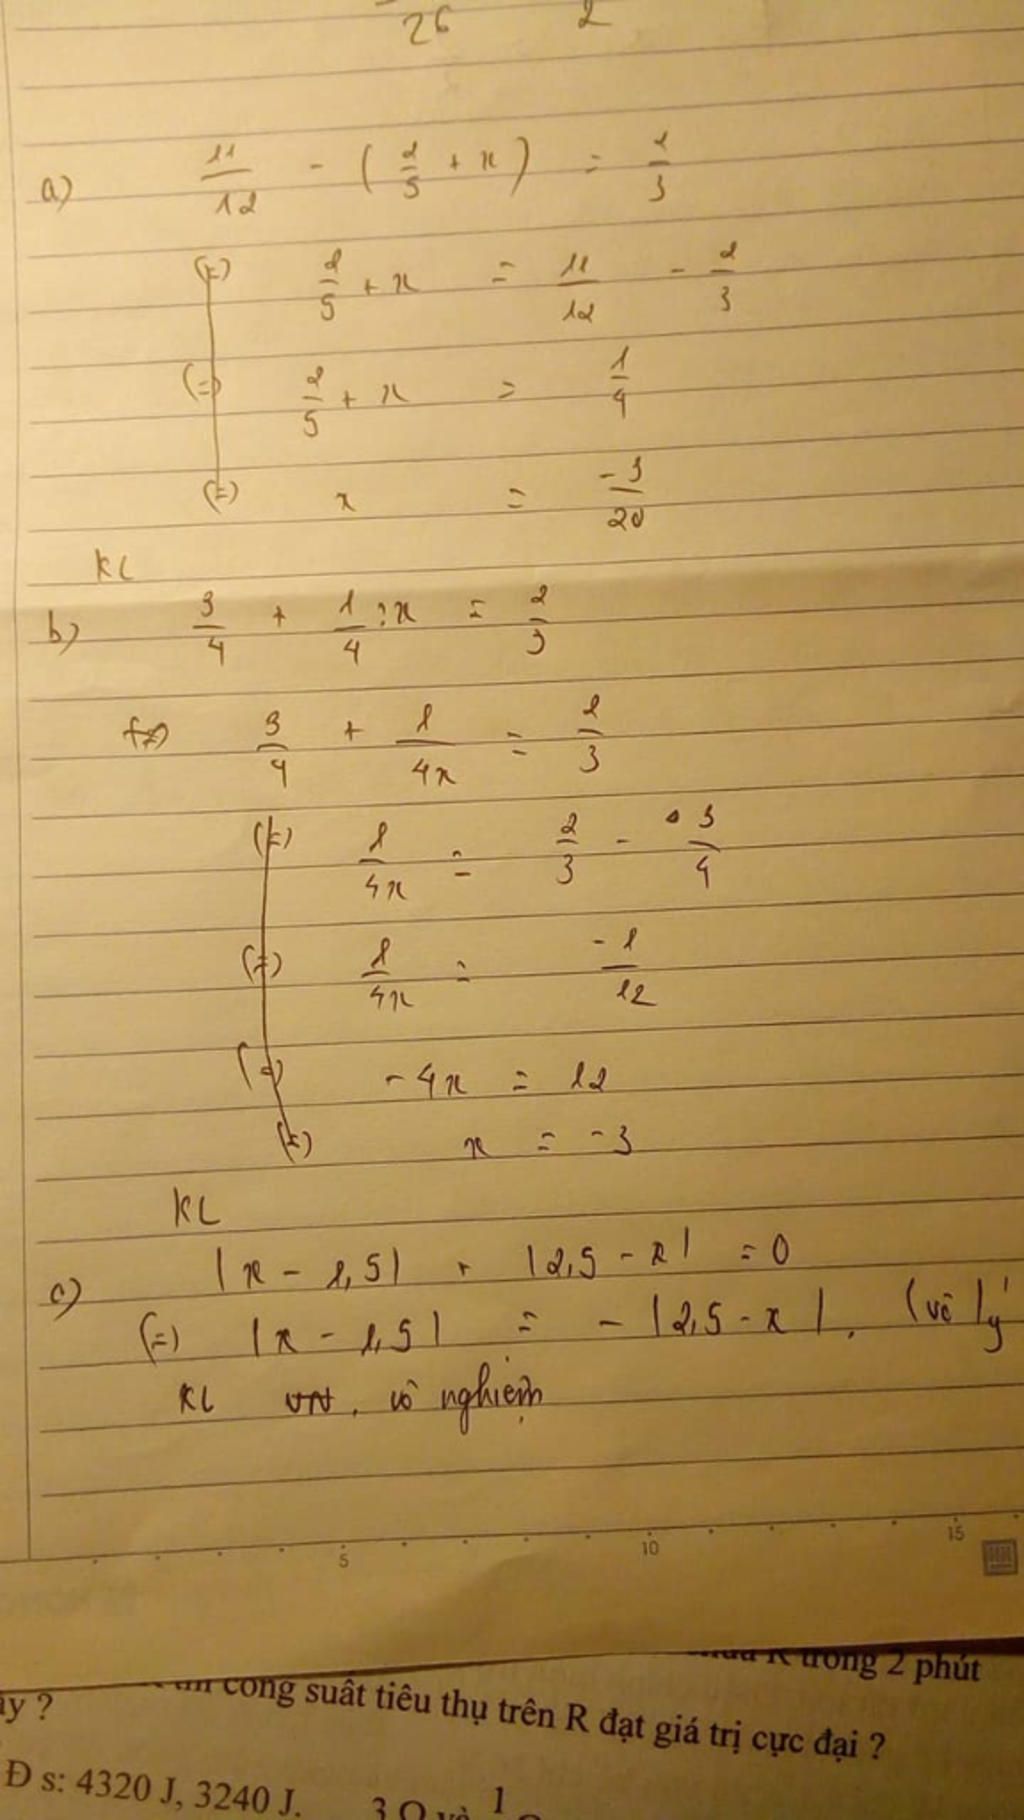 26 2
a) 11/12 - ( 2/5 + x ) = 2/3
(=) 2/5 + x = 11/12 - 2/3
(=) 2/5 + x = 1/4
(=) x = -3/20
KL
b) 3/4 + 1/4 : x = 2/3
3/4 + 1/4x = 2/3
(=) 1/4x = 2/3 - 3/4
(=) 1/4x = -1/12
(=) -4x = 12
(=) x = -3
KL
c) |x - 1,5| + |2,5 - x| = 0
(=) |x - 1,5| = - |2,5 - x|. (vô lý
KL vô nghiệm
5 10 15
R trong 2 phút
ấy ?
công suất tiêu thụ trên R đạt giá trị cực đại ?
Đ s: 4320 J, 3240 J.
3 Ω và 1